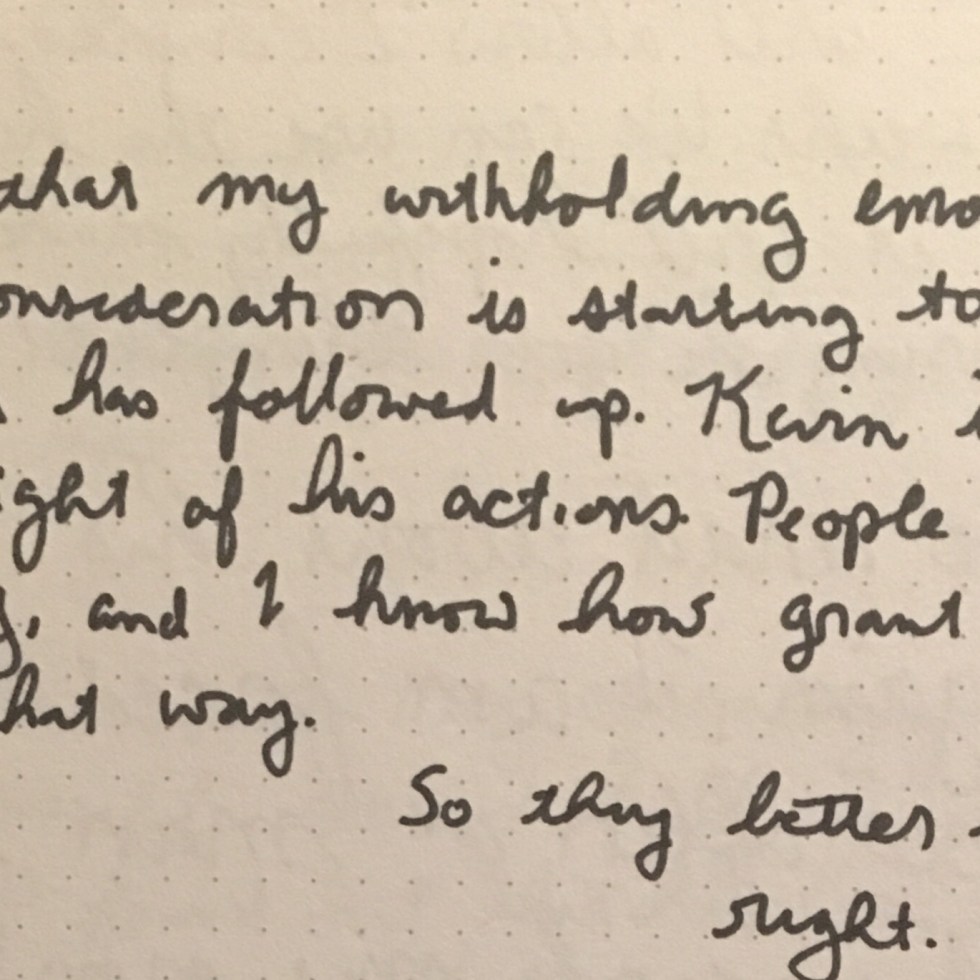 that my withholding emo
onsideration is starting to
has followed up. Kevin
ight of his actions. People
, and I know how grant
hat way.
So they better
right.